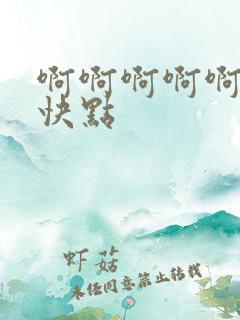 啊啊啊啊啊
快點
虾菇
未经同意禁止转载